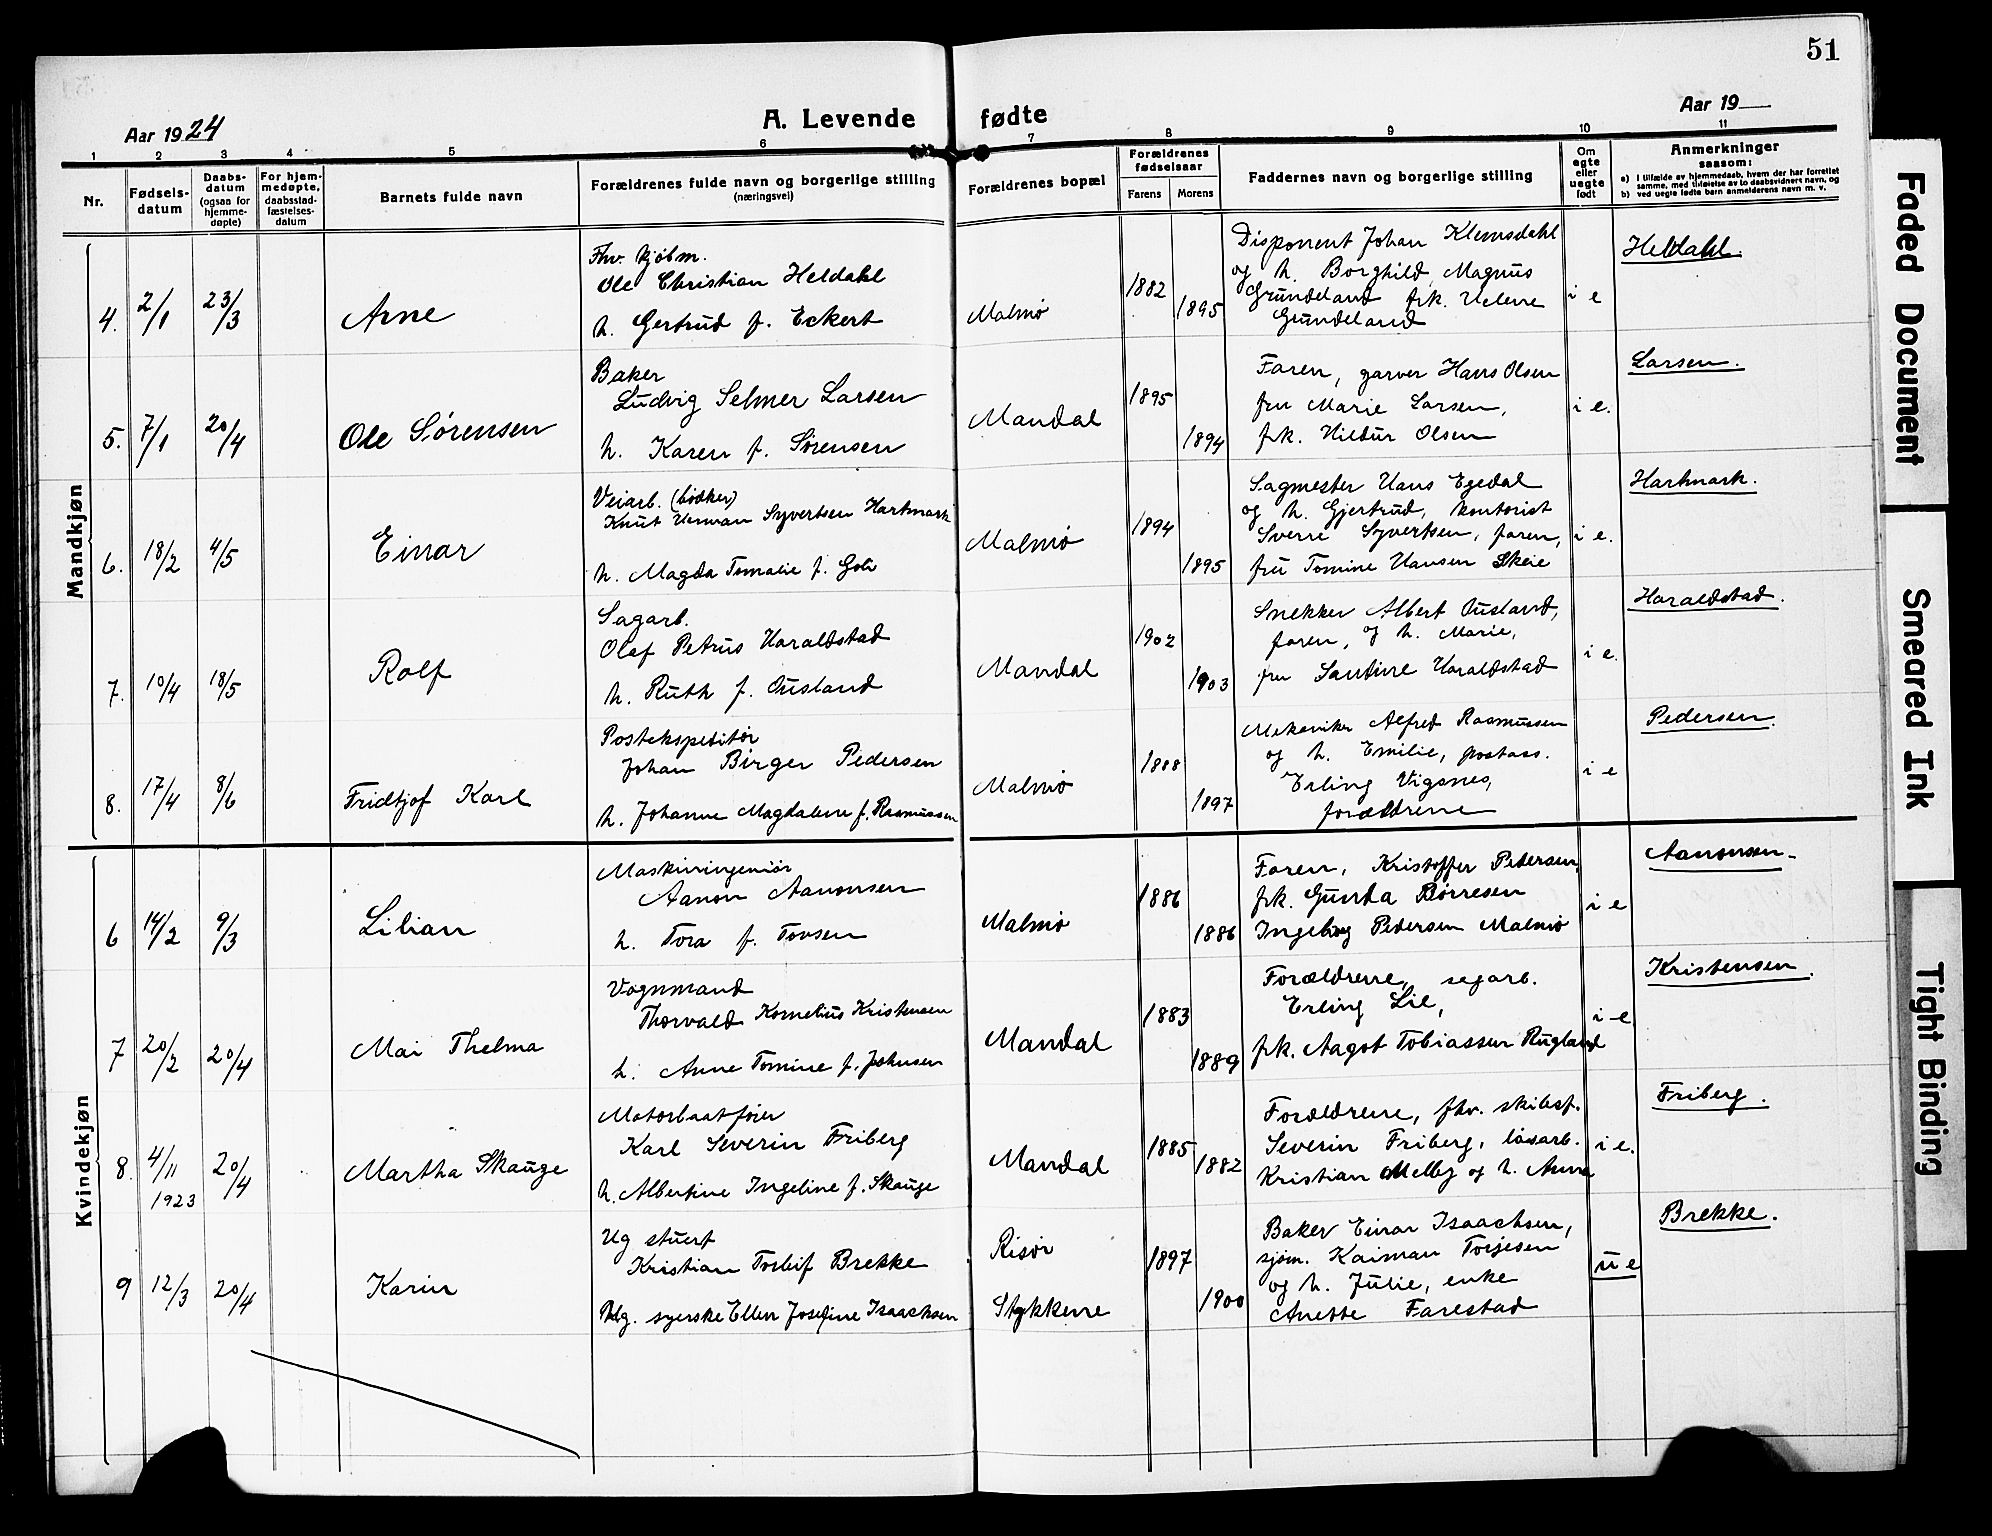 51
Aar 1924
A. Levende fødte
Aar 19
1 2 3 4 5 6 7 8 9 10 11
Nr.
Fødsels-
datum
Daabs-
datum
(ogsaa for
hjemme-
døpte)
For hjem-
medøpte,
daabsstad-
fæstelses-
datum
Barnets fulde navn
Forældrenes fulde navn og borgerlige stilling
(næringsvei)
Forældrenes bopæl
Forældrenes
fødselsaar
Farens
Morens
Faddernes navn og borgerlige stilling
Om
egte
eller
uegte
født
Anmerkninger
saasom:
a) I tilfælde av hjemmedaab, hvem der har forrettet
samme, med tilføielse av to daabsvidners navn, og
b) ved uegte fødte barn anmelderens navn m. v.
Mandkjøn
4.
2/1
23/3
Arne
Fhv. kjøbm.
Ole Christian Heldahl
h. Gertrud f. Eckert
Malmø
1882
1895
Disponent Johan Klemsdahl
og h. Borghild, Magnus
Grundeland frk. Helene
Grundeland
i e
Heldahl.
5.
7/1
20/4
Ole Sørensen
Baker
Ludvig Selmer Larsen
h. Karen f. Sørensen
Mandal
1895
1894
Faren, garver Hans Olsen
fru Marie Larsen,
frk. Hildur Olsen
i e.
Larsen.
6.
18/2
4/5
Einar
Veiarb. (bødker)
Knut Herman Syvertsen Hartmark
h. Magda Tomalie f. Goli
Malmø
1894
1895
Sagmester Hans Egedal
og h. Gjertrud, kontorist
Sverre Syvertsen, faren,
fru Tomine Hansen Skeie
i e.
Hartmark.
7.
10/4
18/5
Rolf
Sagarb.
Olaf Petrus Haraldstad
h. Ruth f. Ousland
Mandal
1902
1903
Snekker Albert Ousland,
faren, og h. Marie,
fru Santine Haraldstad
i e.
Haraldstad.
8.
17/4
8/6
Fridtjof Karl
Postekspeditør
Johan Birger Pedersen
h. Johanne Magdalene f. Rasmussen
Malmø
1888
1897
Mekaniker Alfred Rasmussen
og h. Emilie, postass.
Erling Vigsnes,
forældrene
i e
Pedersen.
Kvindekjøn
6
14/2
9/3
Lilian
Maskiningeniør
Aanon Aanonsen
h. Tora f. Tovsen
Malmø
1886
1886
Faren, Kristoffer Pedersen,
frk. Gunda Børresen
Ingeborg Pedersen Malmø
i e
Aanonsen
7
20/2
20/4
Mai Thelma
Vognmand
Thorvald Kornelius Kristensen
h. Anne Tomine f. Johnsen
Mandal
1883
1889
Forældrene, segarb.
Erling Lie,
frk. Aagot Tobiassen Rugland
i e
Kristensen.
8.
4/11
1923
20/4
Martha Skauge
Motorbaatfører
Karl Severin Friberg
h. Albertine Ingeline f. Skauge
Mandal
1885
1882
Forældrene, fhv. skibsf.
Severin Friberg, løsarb.
Kristian Melby og h. Anna
i e.
Friberg.
9
12/3
20/4
Karin
Ug stuert
Kristian Torleif Brekke
Ug. syerske Ellen Josefine Isaachsen
Risør
Stykkene
1897
1900
Baker Einar Isaachsen,
sjøm. Kaiman Torjesen
og h. Julie, enke
Anette Farestad
u e
Brekke.
Faded Document
Smeared Ink
Tight Binding